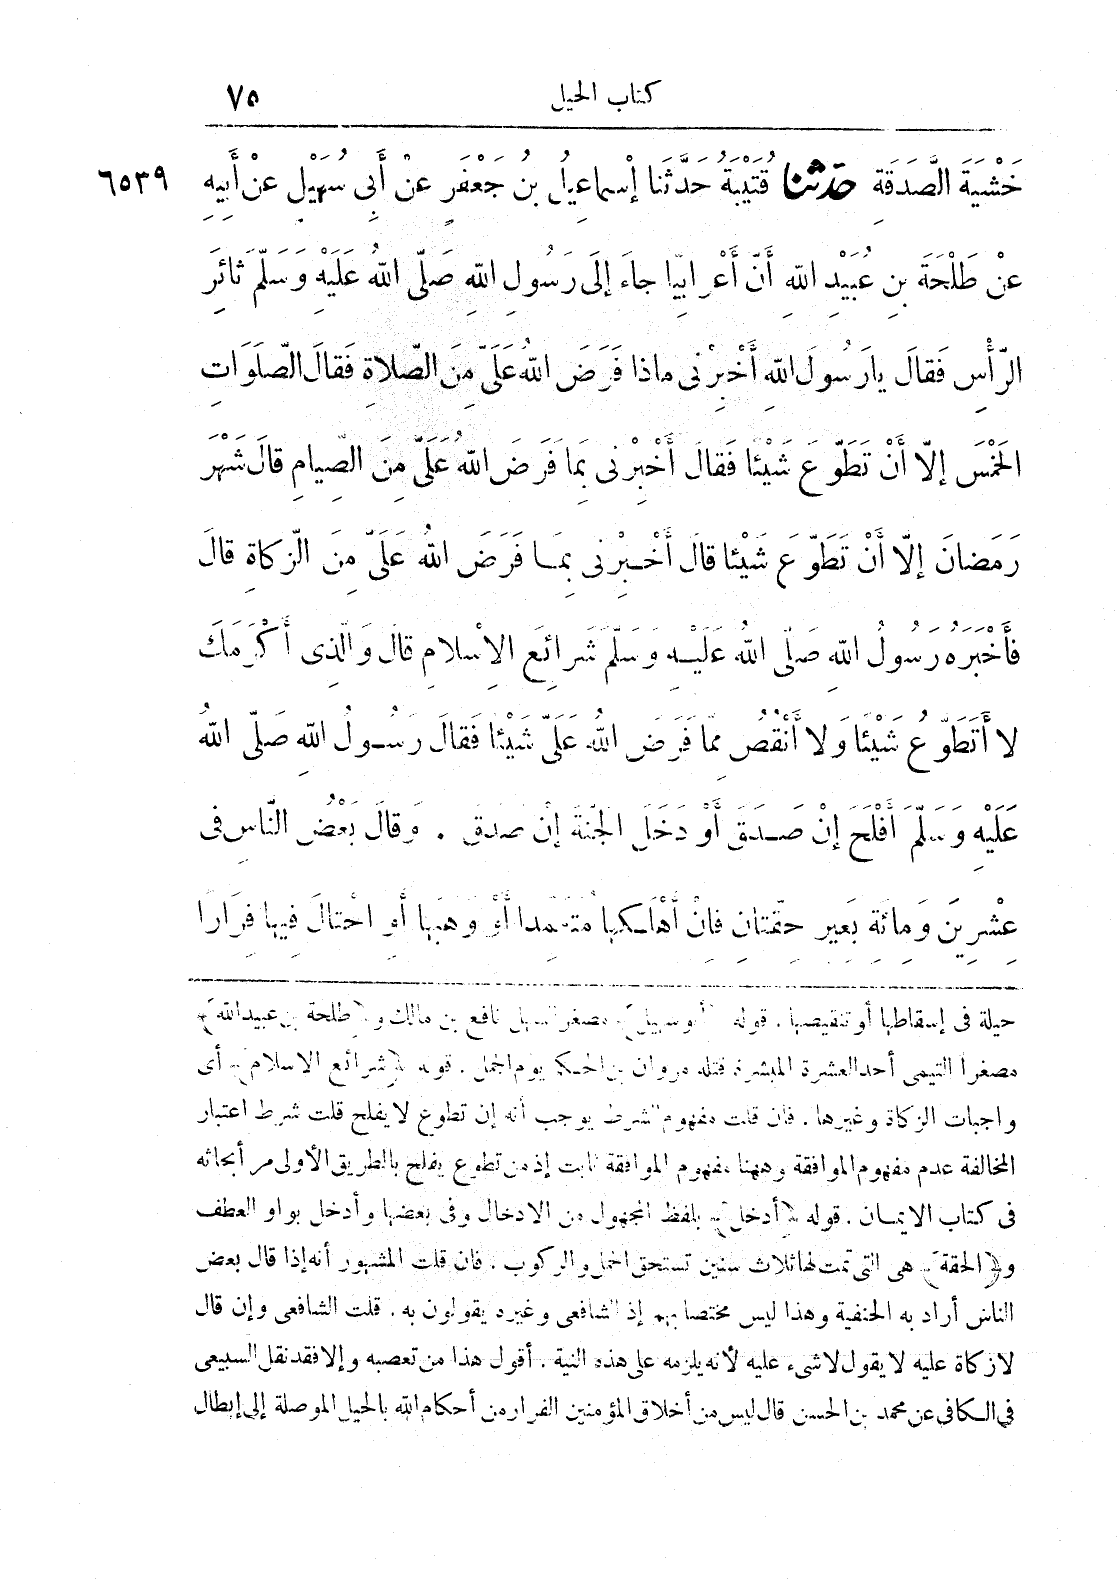 كتاب الحيل ٧٥
خَشْيَةَ الصَّدَقَةِ حدثنا قُتَيْبَةُ حَدَّثَنَا إِسْماعِيلُ بْنُ جَعْفَرٍ عَنْ أَبِى سُهَيْلٍ عَنْ أَبِيهِ ٦٥٣٩
عَنْ طَلْحَةَ بنِ عُبَيْدِ اللهِ أَنَّ أَعْرَابِيًّا جاءَ إلَى رَسُولِ اللهِ صَلَّى اللهُ عَلَيْهِ وَسَلَّمَ ثائرَ
الرَّأْسِ فَقالَ يارَسُولَ اللهِ أَخْبِرْنى ماذا فَرَضَ اللهُ عَلَىَّ مِنَ الصَّلاةِ فَقالَ الصَّلَوَاتِ
الخَمْسَ إلَّا أَنْ تَطَوَّعَ شَيْئًا فَقالَ أَخْبِرْنى بِمَا فَرَضَ اللهُ عَلَىَّ مِنَ الصِّيامِ قالَ شَهْرَ
رَمَضانَ إلَّا أَنْ تَطَوَّعَ شَيْئا قالَ أَخْبِرْنى بِمَا فَرَضَ اللهُ عَلَىَّ مِنَ الزَّكاةِ قالَ
فَأَخْبَرَهُ رَسُولُ اللهِ صَلَّى اللهُ عَلَيْهِ وَسَلَّمَ شَرائِعَ الإسْلامِ قالَ وَالَّذِى أَكْرَمَكَ
لا أَتَطَوَّعُ شَيْئًا وَلا أَنْقُصُ مِمَّا فَرَضَ اللهُ عَلَىَّ شَيْئًا فَقالَ رَسُولُ اللهِ صَلَّى اللهُ
عَلَيْهِ وَسَلَّمَ أَفْلَحَ إنْ صَدَقَ أَوْ دَخَلَ الجَنَّةَ إنْ صَدَقَ . وَقالَ بَعْضُ النَّاسِ فى
عِشْرِينَ وَمائَةِ بَعِيرٍ حِقَّتانِ فَإنْ أَهْلَكَها مُتَعَمِّدا أَوْ وَهَبَها أَوِ احْتالَ فِيها فِرَارًا
حيلة فى إسقاطها أو تنقيصها . قوله ﴿أبو سهيل﴾ مصغر السهل نافع بن مالك و﴿طلحة بن عبيد الله﴾
مصغراً التيمى أحد العشرة المبشرة قتله مروان بن الحكم يوم الجمل . قوله ﴿شرائع الاسلام﴾ أى
واجبات الزكاة وغيرها . فان قلت مفهوم الشرط يوجب أنه إن تطوع لا يفلح قلت شرط اعتبار
المخالفة عدم مفهوم الموافقة وههنا مفهوم الموافقة ثابت إذ من تطوع يفلح بالطريق الأولى مر أبحاثه
فى كتاب الايمان . قوله ﴿أدخل﴾ بلفظ المجهول من الادخال وفى بعضها وأدخل بواو العطف
و﴿الحقة﴾ هى التى تمت لها ثلاث سنين تستحق الحمل والركوب . فان قلت المشهور أنه إذا قال بعض
الناس أراد به الحنفية وهذا ليس مختصا بهم إذ الشافعى وغيره يقولون به . قلت الشافعى وإن قال
لازكاة عليه لا يقول لاشىء عليه لأنه يلزمه على هذه النية . أقول هذا من تعصبه وإلا فقد نقل السبيعى
فى الكافى عن محمد بن الحسن قال ليس من أخلاق المؤمنين الفرار من أحكام الله بالحيل الموصلة إلى إبطال